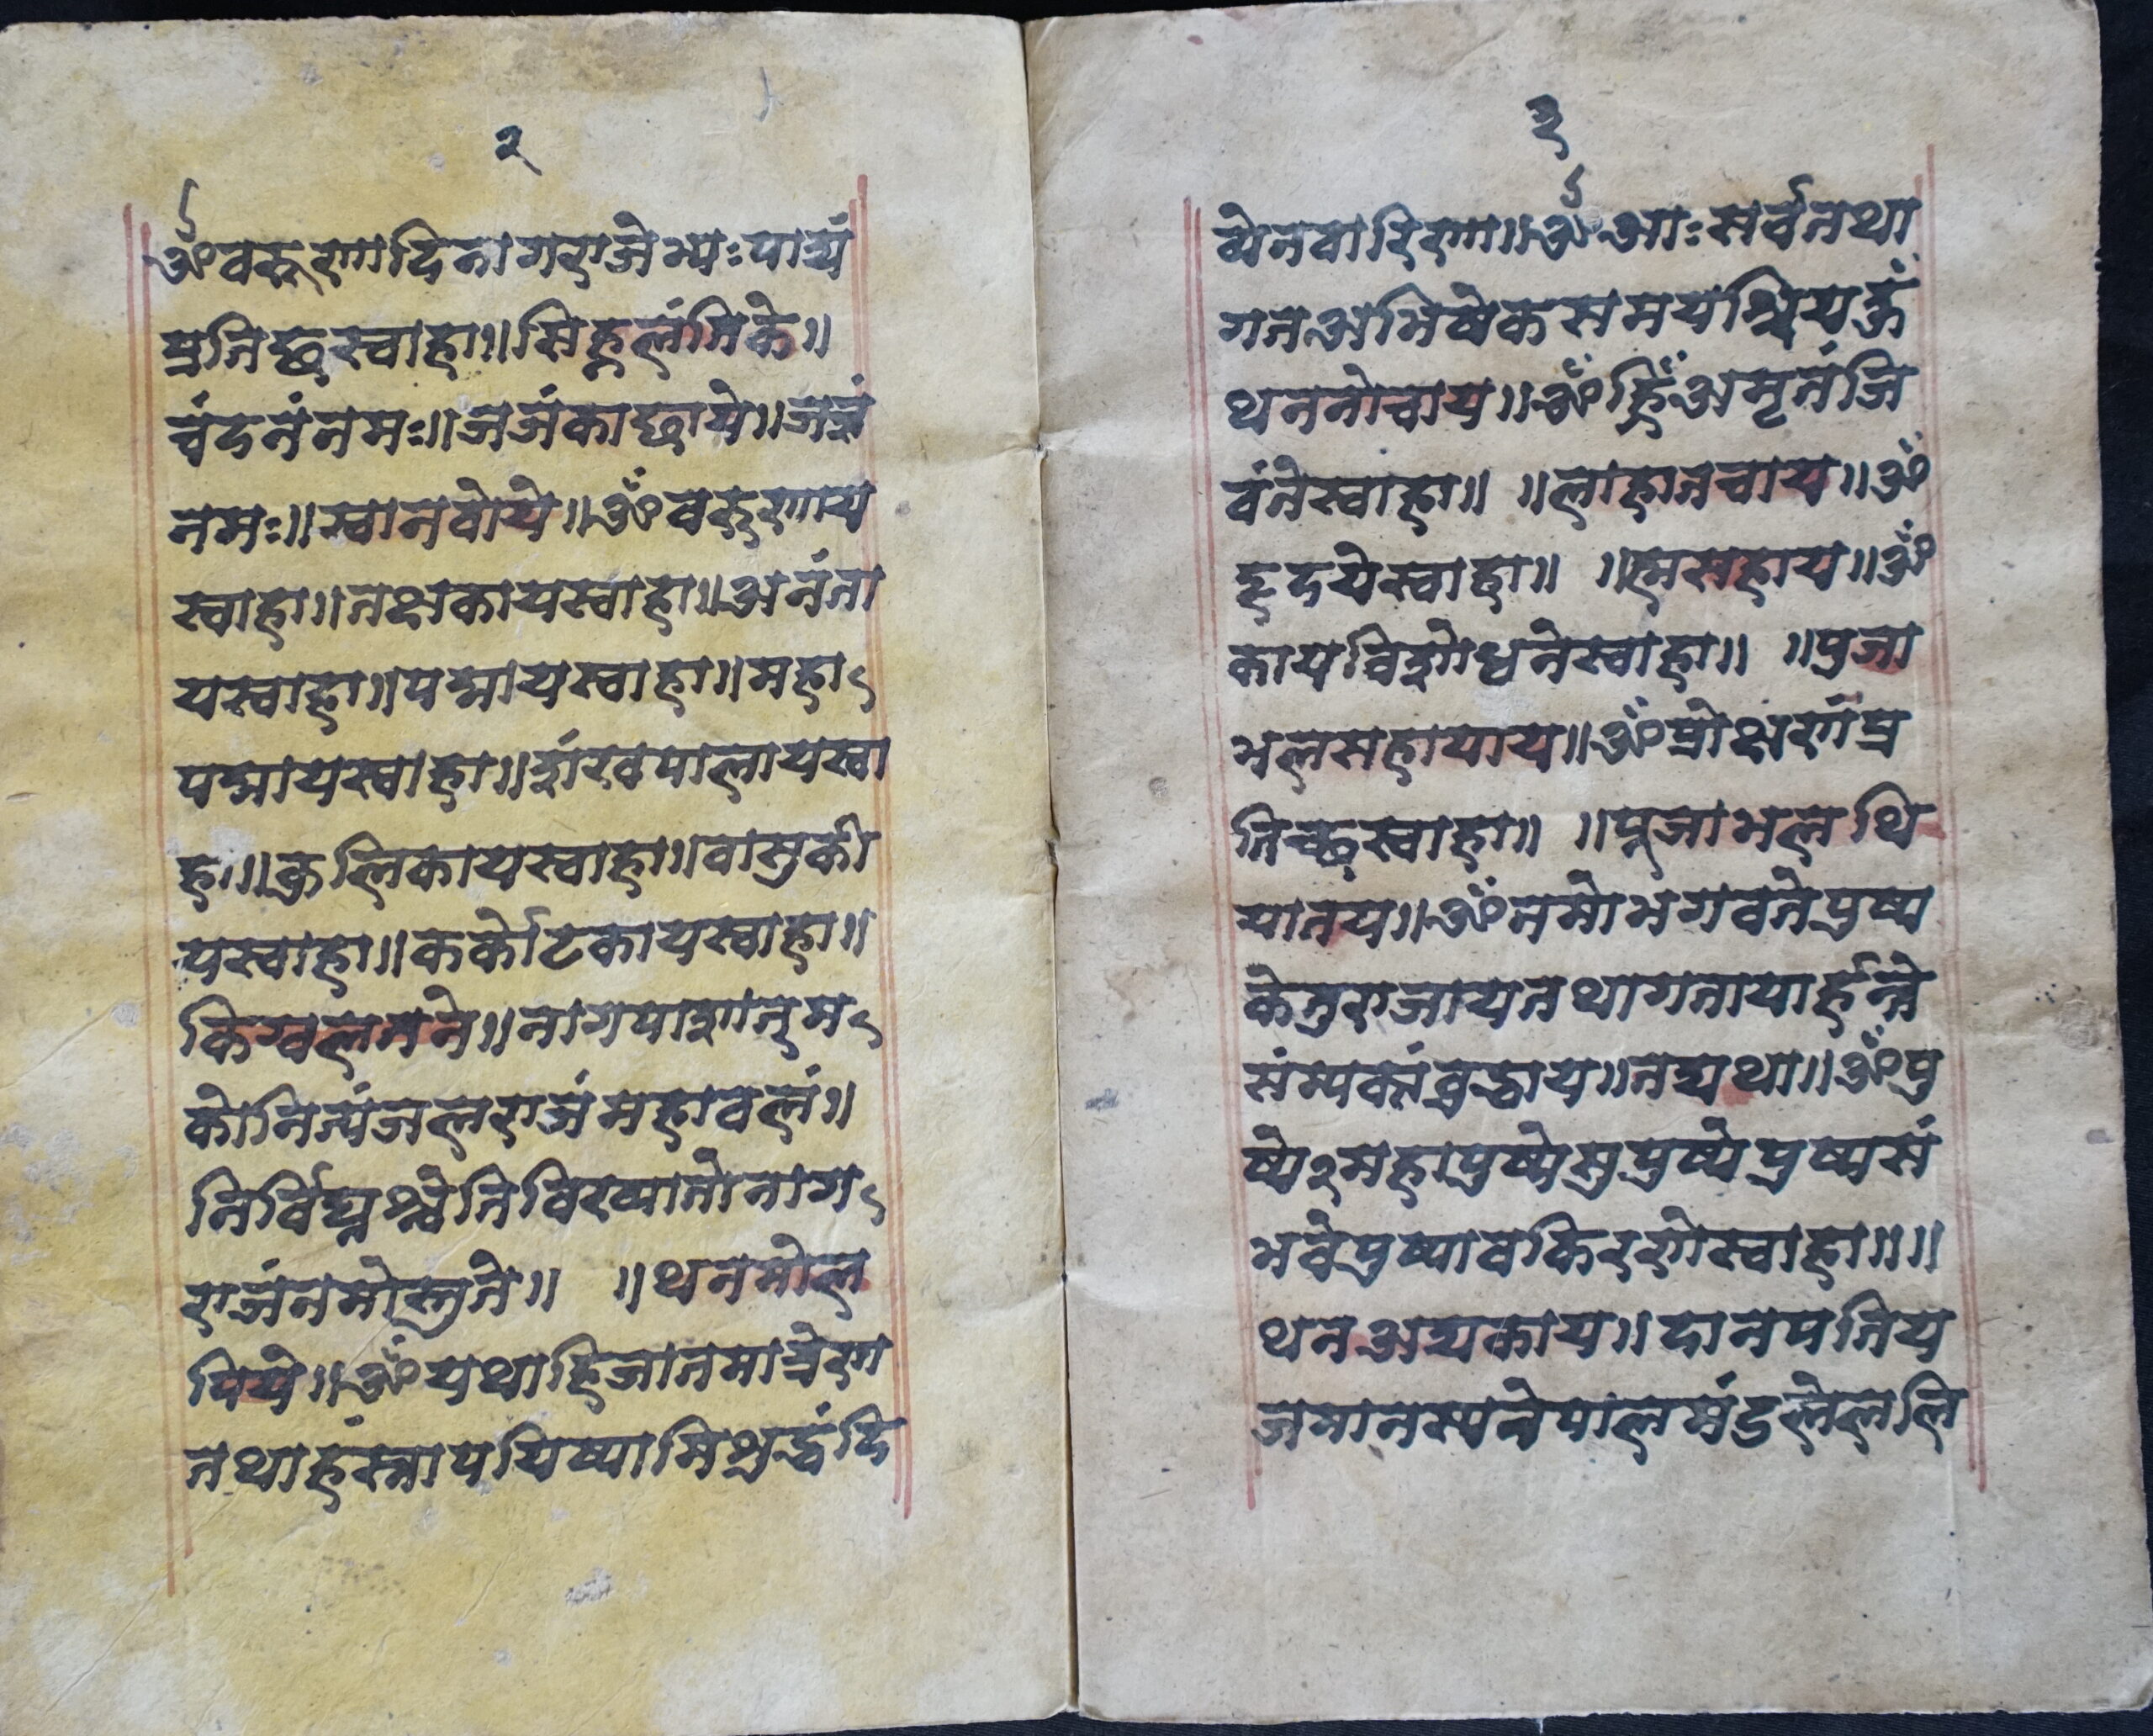 २
ॐ वरुणादिनागराजेभ्यः पाद्यं
प्रतिछस्वाहा॥सिह्नलंतिके॥
चंदनंनमः॥जजंकाछाये॥जज्ञं
नमः॥स्वानवोये॥ॐवरुणाय
स्वाहा॥तक्षकायस्वाहा॥अनंता
यस्वाहा॥पद्मायस्वाहा॥महा
पद्मायस्वाहा॥शंखपालायस्वा
हा॥कुलिकायस्वाहा॥वासुकी
यस्वाहा॥कर्कोटकायस्वाहा॥
किग्वलतने॥नागपाशानम
कोनित्यंजलराजंमहावलं॥
निर्विघ्नश्चेतिविख्यातोनाग
राजंनमोस्तुते॥ ॥थनमोल
पिये॥ॐयथाहिजातमात्रेण
तथाहंस्नापयिष्यामिशुद्धंदि
३
व्येनवारिणा॥ॐआःसर्वतथा
गतअभिषेकसमयश्रियहूं
थनतोचाय॥ॐह्रिंअमृतंजि
वंनेस्वाहा॥ ॥लाहातचाय॥ॐ
हृदयेस्वाहा॥ ॥ह्मसहाय॥ॐ
कायविशोधनेस्वाहा॥ ॥पुजा
भलसहायाय॥ॐप्रोक्षणंप्र
तिच्छस्वाहा॥ ॥पूजाभलथि
यातय॥ॐनमोभगवतेपुष्प
केतुराजायतथागतायार्हन्ते
संम्यक्संवुद्धाय॥तद्यथा॥ॐपु
ष्पे२महापुष्पेसुपुष्पेपुष्पसं
भवेपुष्पावकिरणेस्वाहा॥॥
थनअद्यकाय॥दानपतिय
जमानस्यनेपालमंडलेललि